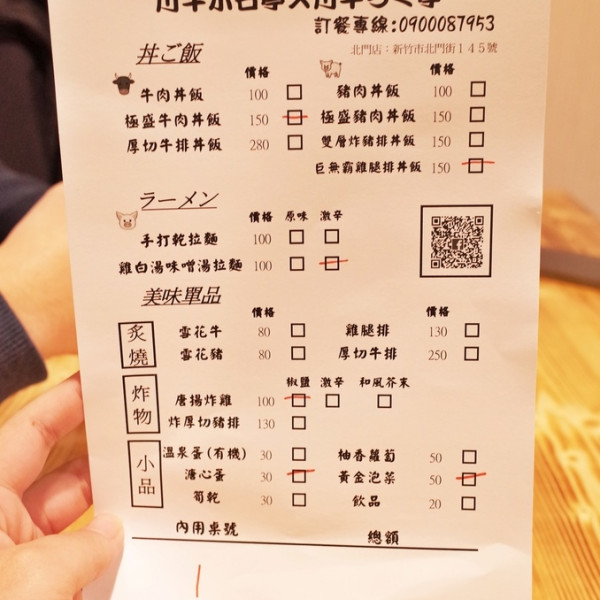 訂餐專線:0900087953
北門店：新竹市北門街145號
丼ご飯
價格 價格
牛肉丼飯 100 豬肉丼飯 100
極盛牛肉丼飯 150 極盛豬肉丼飯 150
厚切牛排丼飯 280 雙層炸豬排丼飯 150
巨無霸雞腿排丼飯 150
ラーメン
價格 原味 激辛
手打乾拉麵 100
雞白湯味噌湯拉麵 100
美味單品
價格 價格
炙燒
雪花牛 80 雞腿排 130
雪花豬 80 厚切牛排 250
炸物
椒鹽 激辛 和風芥末
唐揚炸雞 100
炸厚切豬排 130
小品
溫泉蛋(有機) 30 柚香蘿蔔 50
溏心蛋 30 黃金泡菜 50
筍乾 30 飲品 20
內用桌號 總額
1